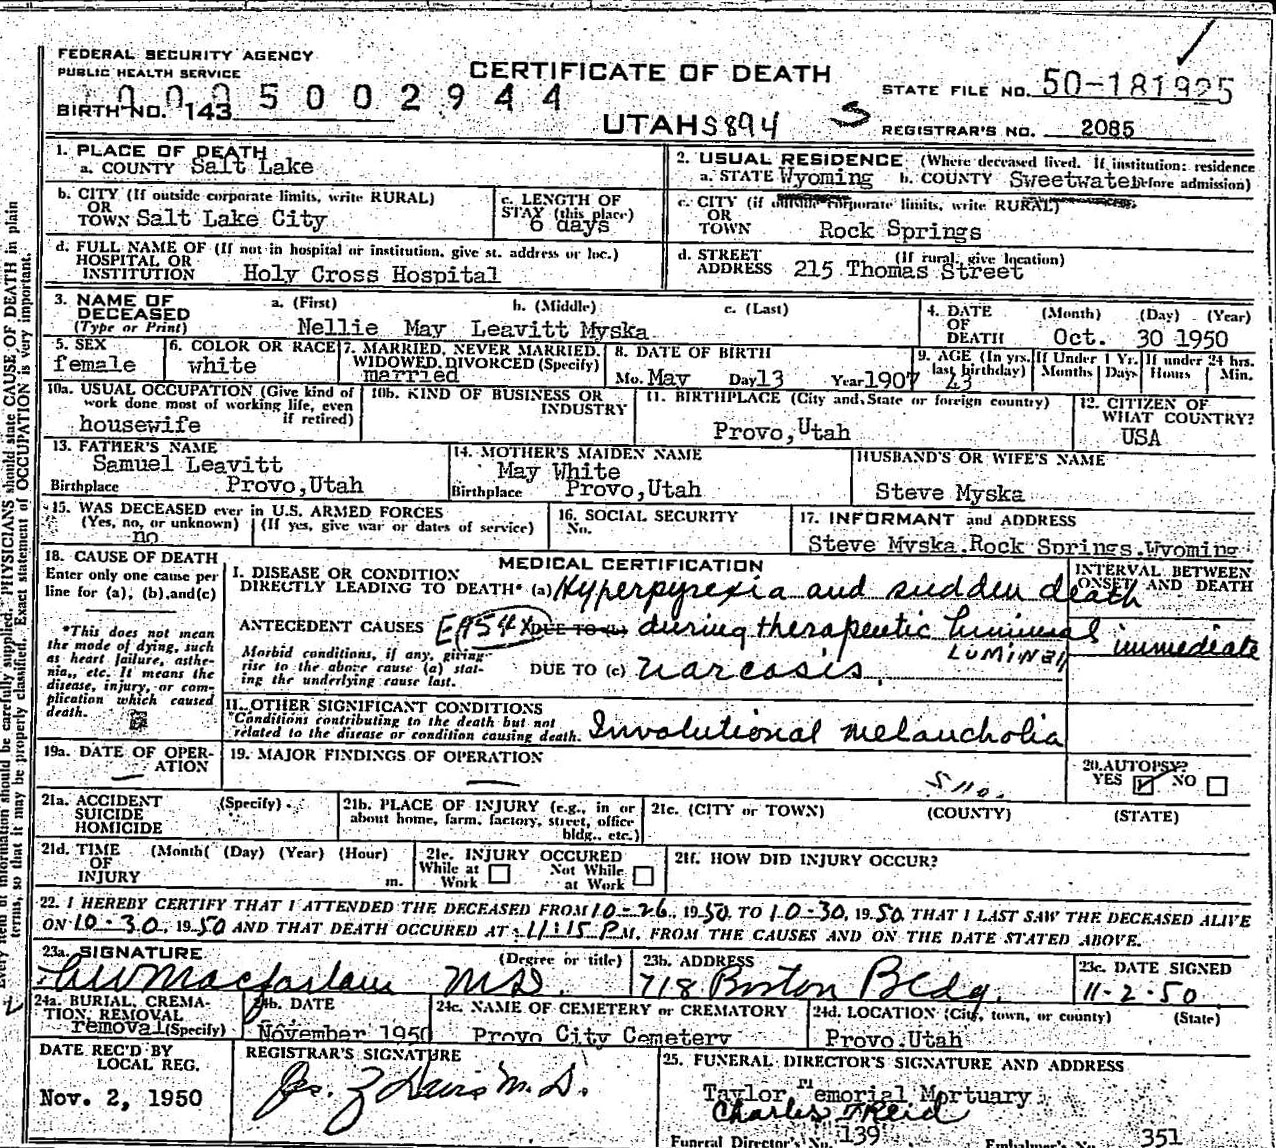 FEDERAL SECURITY AGENCY
PUBLIC HEALTH SERVICE
CERTIFICATE OF DEATH
STATE FILE NO. 50-181925
0005002944
BIRTH NO. 143
UTAH 5894 S
REGISTRAR'S NO. 2085
1. PLACE OF DEATH
a. COUNTY Salt Lake
2. USUAL RESIDENCE (Where deceased lived. If institution: residence
a. STATE Wyoming b. COUNTY Sweetwater before admission)
b. CITY (If outside corporate limits, write RURAL)
OR
TOWN Salt Lake City
c. LENGTH OF
STAY (this place)
6 days
c. CITY (if outside corporate limits, write RURAL)
OR
TOWN Rock Springs
d. FULL NAME OF (If not in hospital or institution, give st. address or loc.)
HOSPITAL OR
INSTITUTION Holy Cross Hospital
d. STREET (If rural, give location)
ADDRESS 215 Thomas Street
3. NAME OF
DECEASED
(Type or Print)
a. (First) b. (Middle) c. (Last)
Nellie May Leavitt Myska
4. DATE (Month) (Day) (Year)
OF
DEATH Oct. 30 1950
5. SEX
female
6. COLOR OR RACE
white
7. MARRIED, NEVER MARRIED,
WIDOWED, DIVORCED (Specify)
married
8. DATE OF BIRTH
Mo. May Day 13 Year 1907
9. AGE (In yrs.
last birthday)
43
If Under 1 Yr.
Months Days
If under 24 hrs.
Hours Min.
10a. USUAL OCCUPATION (Give kind of
work done most of working life, even
if retired)
housewife
10b. KIND OF BUSINESS OR
INDUSTRY
11. BIRTHPLACE (City and State or foreign country)
Provo, Utah
12. CITIZEN OF
WHAT COUNTRY?
USA
13. FATHER'S NAME
Samuel Leavitt
Birthplace Provo, Utah
14. MOTHER'S MAIDEN NAME
May White
Birthplace Provo, Utah
HUSBAND'S OR WIFE'S NAME
Steve Myska
15. WAS DECEASED ever in U.S. ARMED FORCES
(Yes, no, or unknown) (If yes, give war or dates of service)
no
16. SOCIAL SECURITY
No.
17. INFORMANT and ADDRESS
Steve Myska, Rock Springs, Wyoming
18. CAUSE OF DEATH
Enter only one cause per
line for (a), (b), and (c)
*This does not mean
the mode of dying, such
as heart failure, asthe-
nia, etc. It means the
disease, injury, or com-
plication which caused
death.
MEDICAL CERTIFICATION
INTERVAL BETWEEN
ONSET AND DEATH
I. DISEASE OR CONDITION
DIRECTLY LEADING TO DEATH* (a) Hyperpyrexia and sudden death
ANTECEDENT CAUSES DUE TO (b) during therapeutic luminal
LUMINEll
immediate
Morbid conditions, if any, giving
rise to the above cause (a) stat-
ing the underlying cause last.
DUE TO (c) narcosis.
11. OTHER SIGNIFICANT CONDITIONS
*Conditions contributing to the death but not
related to the disease or condition causing death.
Involutional melancholia
19a. DATE OF OPER-
ATION
19. MAJOR FINDINGS OF OPERATION
20. AUTOPSY?
YES NO
21a. ACCIDENT (Specify)
SUICIDE
HOMICIDE
21b. PLACE OF INJURY (e.g., in or
about home, farm, factory, street, office
bldg., etc.)
21c. (CITY or TOWN) (COUNTY) (STATE)
21d. TIME (Month( (Day) (Year) (Hour)
OF
INJURY m.
21e. INJURY OCCURED
While at Work
Not While at Work
21f. HOW DID INJURY OCCUR?
22. I HEREBY CERTIFY THAT I ATTENDED THE DECEASED FROM 10-26, 1950, TO 10-30, 1950, THAT I LAST SAW THE DECEASED ALIVE
ON 10-30, 1950 AND THAT DEATH OCCURED AT 11:15 P.M. FROM THE CAUSES AND ON THE DATE STATED ABOVE.
23a. SIGNATURE (Degree or title)
MacFarlane MD.
23b. ADDRESS
718 Boston Bldg.
23c. DATE SIGNED
11-2-50
24a. BURIAL, CREMA-
TION, REMOVAL
removal (Specify)
24b. DATE
November 1950
24c. NAME OF CEMETERY or CREMATORY
Provo City Cemetery
24d. LOCATION (City, town, or county) (State)
Provo, Utah
DATE REC'D BY
LOCAL REG.
Nov. 2, 1950
REGISTRAR'S SIGNATURE
M.D.
25. FUNERAL DIRECTOR'S SIGNATURE AND ADDRESS
Taylor Memorial Mortuary
Charles T Reid
Funeral Director's No. 139 Embalmer's No. 351
Every item of information should be carefully supplied. PHYSICIANS should state CAUSE OF DEATH in plain
terms, so that it may be properly classified. Exact statement of OCCUPATION is very important.